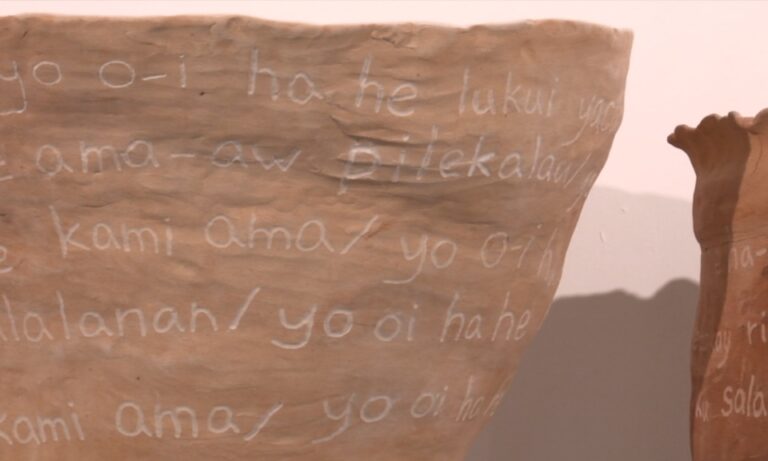 yo o-i ha he lukui
ama-aw pilekalaw/
kami ama/ yo o-i h
lalanan/ yo oi ha he
kami ama/ yo oi ha h
na-
ay ri
sala